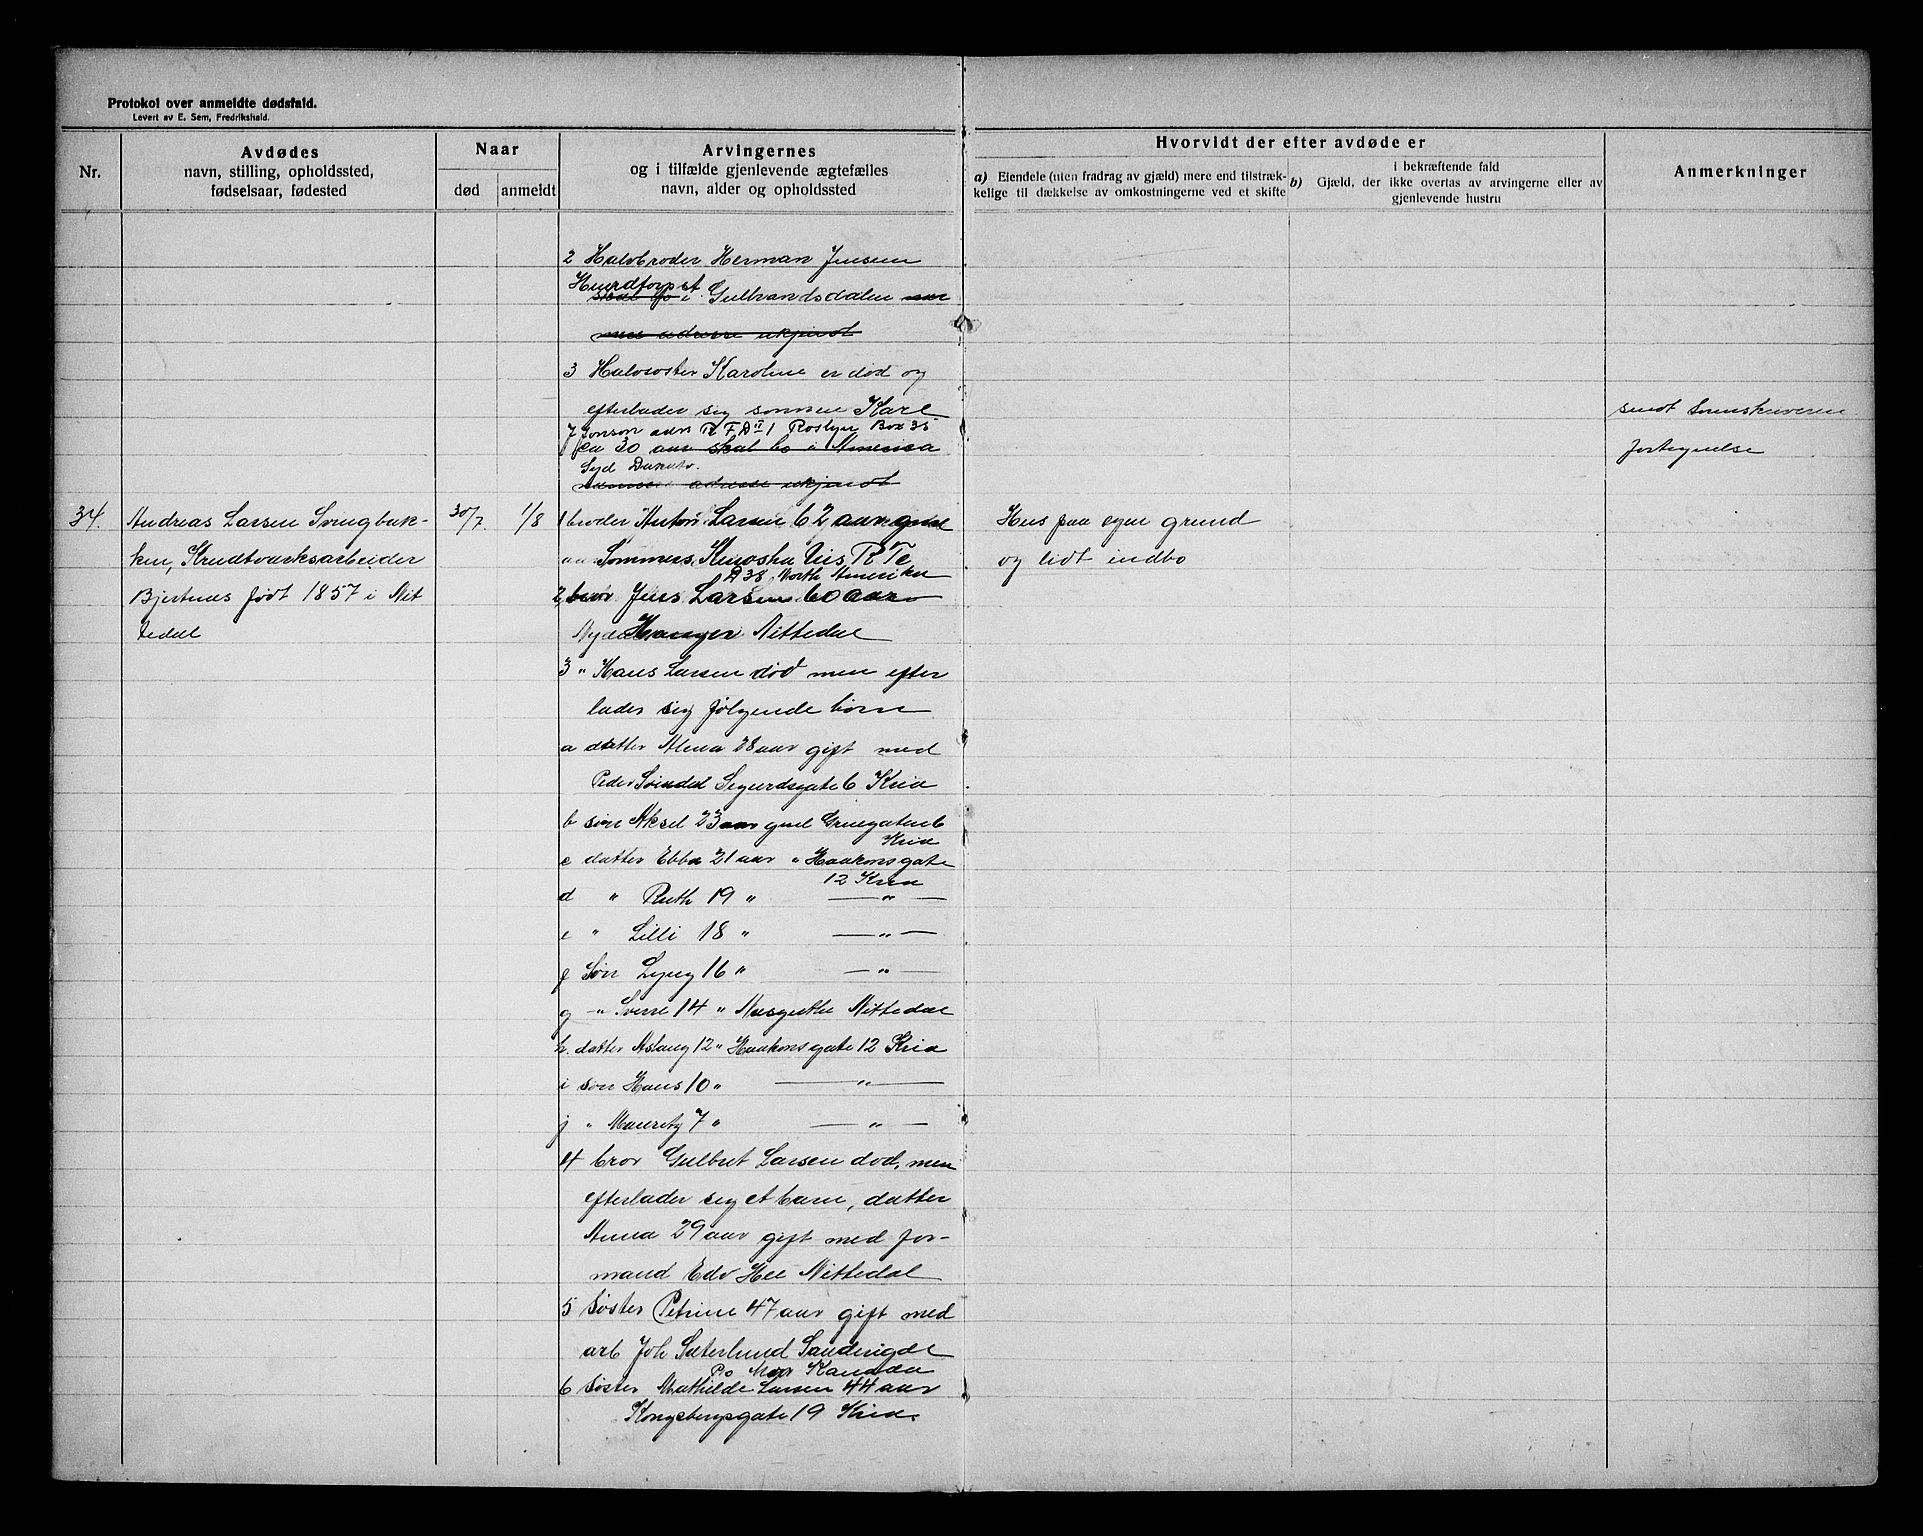 Protokol over anmeldte dødsfald.
Levert av E. Sem, Fredrikshald.
Nr.
Avdødes
navn, stilling, opholdssted,
fødselsaar, fødested
Naar
død
anmeldt
Arvingernes
og i tilfælde gjenlevende ægtefælles
navn, alder og opholdssted
Hvorvidt der efter avdøde er
a) Eiendele (uten fradrag av gjæld) mere end tilstræk-
kelige til dækkelse av omkostningerne ved et skifte
i bekræftende fald
b) Gjæld, der ikke overtas av arvingerne eller av
gjenlevende hustru
Anmerkninger
2 Halvbroder Herman Jensen
skal bo i Gulbrandsdalen
men adresse ukjendt
3 Halvsøster Karoline er død og
efterlader sig sønnen Karl
Jonson adr R F D II 1 Roslyn Box 35
ca 30 aar skal bo i America
Syd Dakota.
adresse ukjendt
sendt Sorenskriveren
fortegnelse
34.
Andreas Larsen Svingbak-
ken, Krudtværksarbeider
Bjertnes født 1857 i Nit
tedal
30/7
1/8
1 broder Anton Larsen 62 aar
Sommers, Kenosha Vis R
D 38, North Amerika
2 bror Jens Larsen 60 aar
Nittedal
3 " Hans Larsen død men efter
lader sig følgende børn
a datter Alma 28 aar gift med
Peder Sigurdsgate 6 Kria
b søn Aksel 23 aar Gruegaten 6
Kria
c datter Ebba 21 aar " Haakonsgate
12 Kria
d " Ruth 19 " — " —
e " Lilli 18 " — " —
f Søn 16 " — " —
g " Sverre 14 " Nittedal
h. datter Aslaug 12 " Haakonsgate 12 Kria
i søn Hans 10 " — " —
j " Mauritz 7 " — " —
4 bror Gulbret Larsen død, men
efterlader sig et barn, datter
Anna 29 aar gift med for-
mand Edv Nittedal
5 Søster Petrine 47 aar gift med
arb Joh Sæterlund
Po Kanada
6 søster Mathilde Larsen 44 aar
Kongsbergsgate 19 Kria.
Hus paa egen grund
og lidt indbo